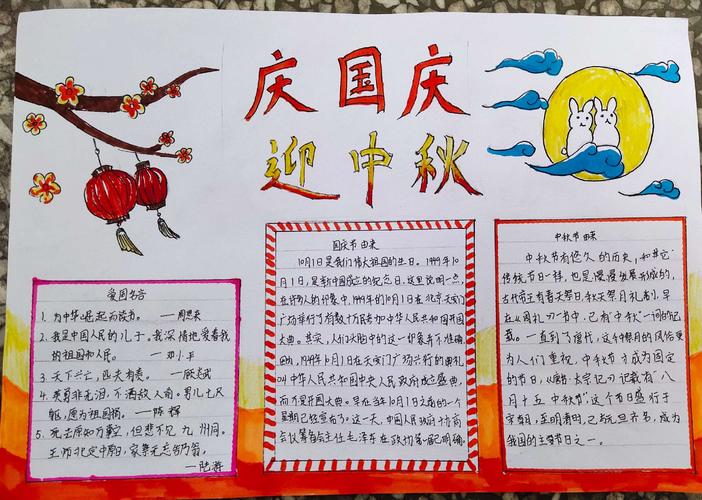 庆国庆
迎中秋
爱国名言
1. 为中华崛起而读书。 —周恩来
2. 我是中国人民的儿子。我深情地爱着我
的祖国和人民。 —邓小平
3. 天下兴亡,匹夫有责。 —顾炎武
4. 英勇非无泪,不洒敌人前。男儿七尺
躯,愿为祖国捐。 —陈辉
5. 死去原知万事空,但悲不见九州同。
王师北定中原日,家祭无忘告乃翁。
—陆游
国庆节由来
10月1日是我们伟大祖国的生日。1949年10
月1日,是新中国成立的纪念日。这里说明一点,
在许多人的印象中,1949年的10月1日在北京天安门
广场举行了有数十万民参加中华人民共和国开国
大典。其实,人们头脑中的这一印象并不准确。
因为,1949年10月1日在天安门广场举行的典礼
叫中华人民共和国中央人民政府成立盛典,
而不是开国大典。早在当年10月1日之前的一个
星期已经宣布了。这一天,中国人民政府协商
会议筹备会主任毛泽东在政协第一届已明确。
中秋节由来
中秋节有悠久的历史,和其它
传统节日一样,也是慢慢发展形成的,
古代帝王有春天祭日,秋天祭月礼制,早
在《周礼》一书中,已有"中秋"一词的记
载。一直到了唐代,这个中秋的风俗更
为人们重视,中秋节才成为固定
的节日,《唐书·太宗记》记载有"八
月十五中秋节"。这个节日盛行于
宋朝,至明清时,已与元旦齐名,成为
我国的主要节日之一。